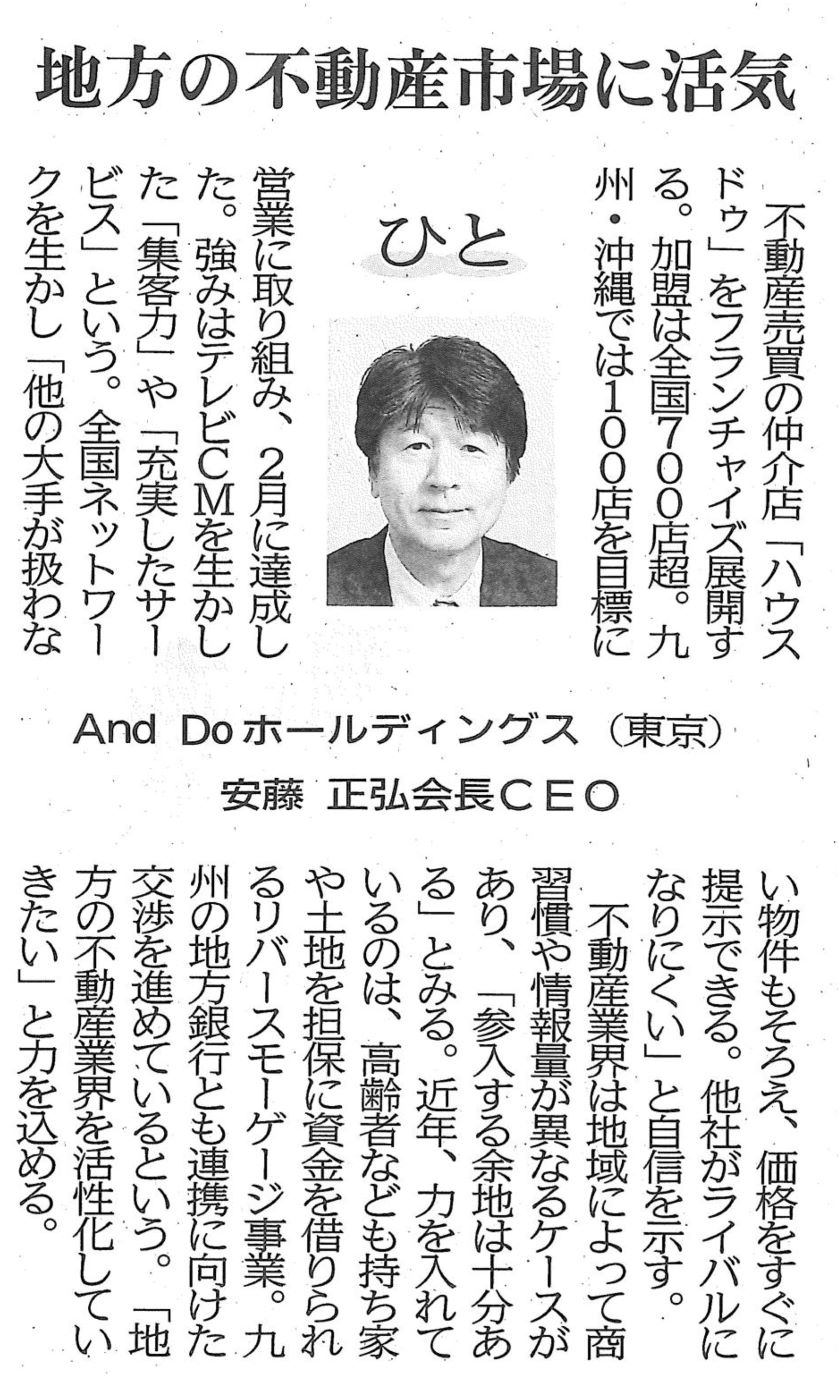 地方の不動産市場に活気
ひと
　不動産売買の仲介店「ハウス
ドゥ」をフランチャイズ展開す
る。加盟は全国700店超。九
州・沖縄では100店を目標に
営業に取り組み、2月に達成し
た。強みはテレビCMを生かし
た「集客力」や「充実したサー
ビス」という。全国ネットワー
クを生かし「他の大手が扱わな
And Doホールディングス（東京）
安藤 正弘会長CEO
い物件もそろえ、価格をすぐに
提示できる。他社がライバルに
なりにくい」と自信を示す。
　不動産業界は地域によって商
習慣や情報量が異なるケースが
あり、「参入する余地は十分あ
る」とみる。近年、力を入れて
いるのは、高齢者なども持ち家
や土地を担保に資金を借りられ
るリバースモーゲージ事業。九
州の地方銀行とも連携に向けた
交渉を進めているという。「地
方の不動産業界を活性化してい
きたい」と力を込める。